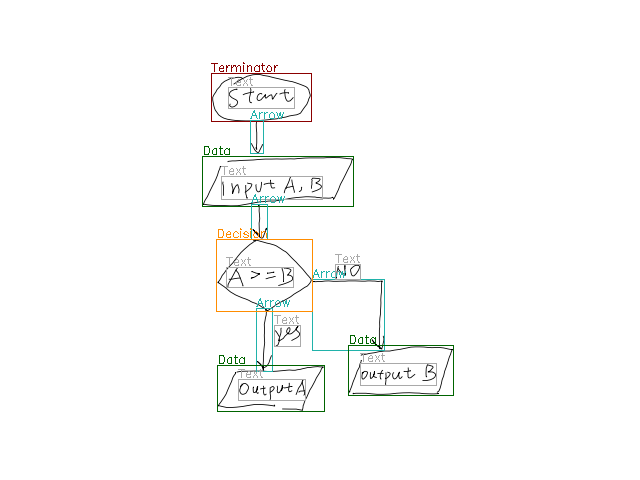 Terminator
Text
Start
Arrow
Data
Text
input A, B
Arrow
Decision
Text
A >= B
Text
NO
Arrow
Arrow
Text
yes
Data
Text
output B
Data
Text
Output A